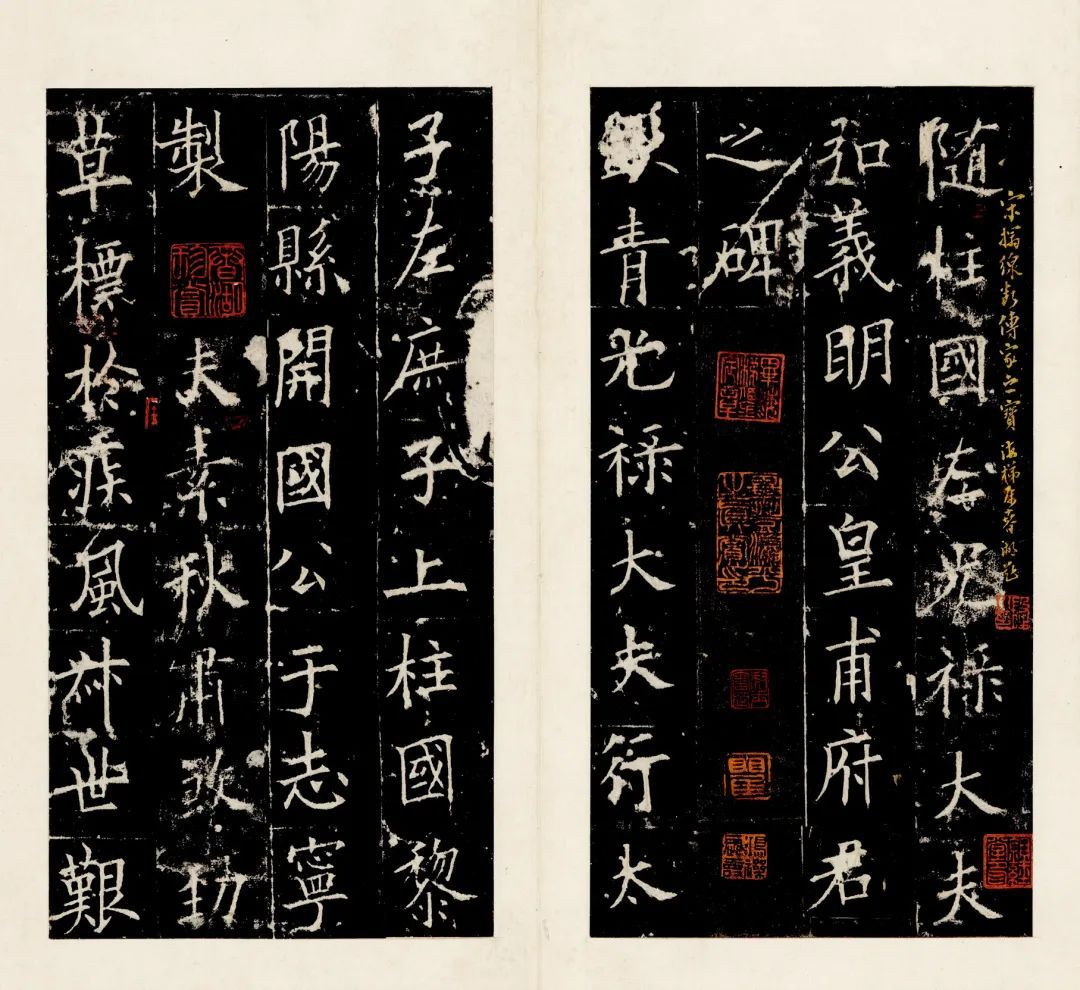 宋搨線斷傳家之寶
隨柱國左光祿大夫
弘義明公皇甫府君
之碑
青光祿大夫行太
子左庶子上柱國黎
陽縣開國公于志寧
製
春湖珍賞
夫素秋肅煞勁
草標於疾風叔世艱